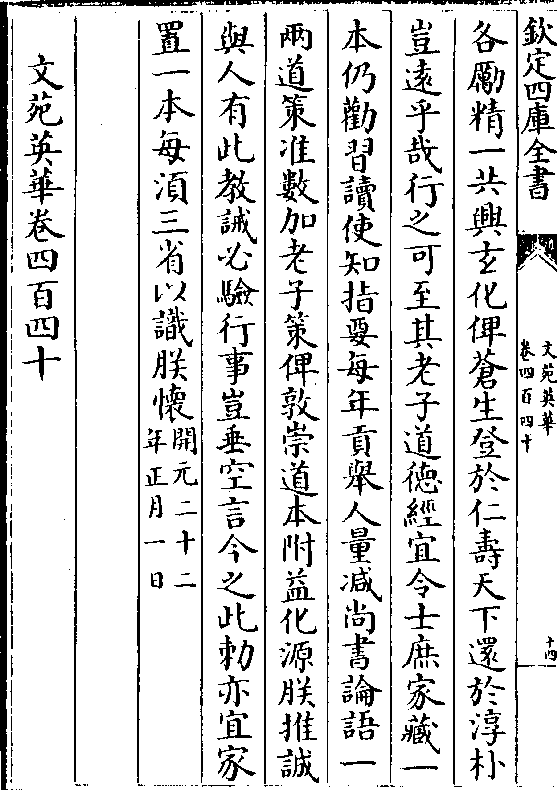 欽定四庫全書
文苑英華
卷四百四十
十四
各勵精一共興玄化俾蒼生登於仁壽天下還於淳朴
豈遠乎哉行之可至其老子道德經宜令士庶家藏一
本仍勸習讀使知指要每年貢舉人量減尚書論語一
兩道策准數加老子策俾敦崇道本附益化源朕推誠
與人有此教誡必驗行事豈垂空言今之此勅亦宜家
置一本每湏三省以識朕懷開元二十二
年正月一日
文苑英華卷四百四十